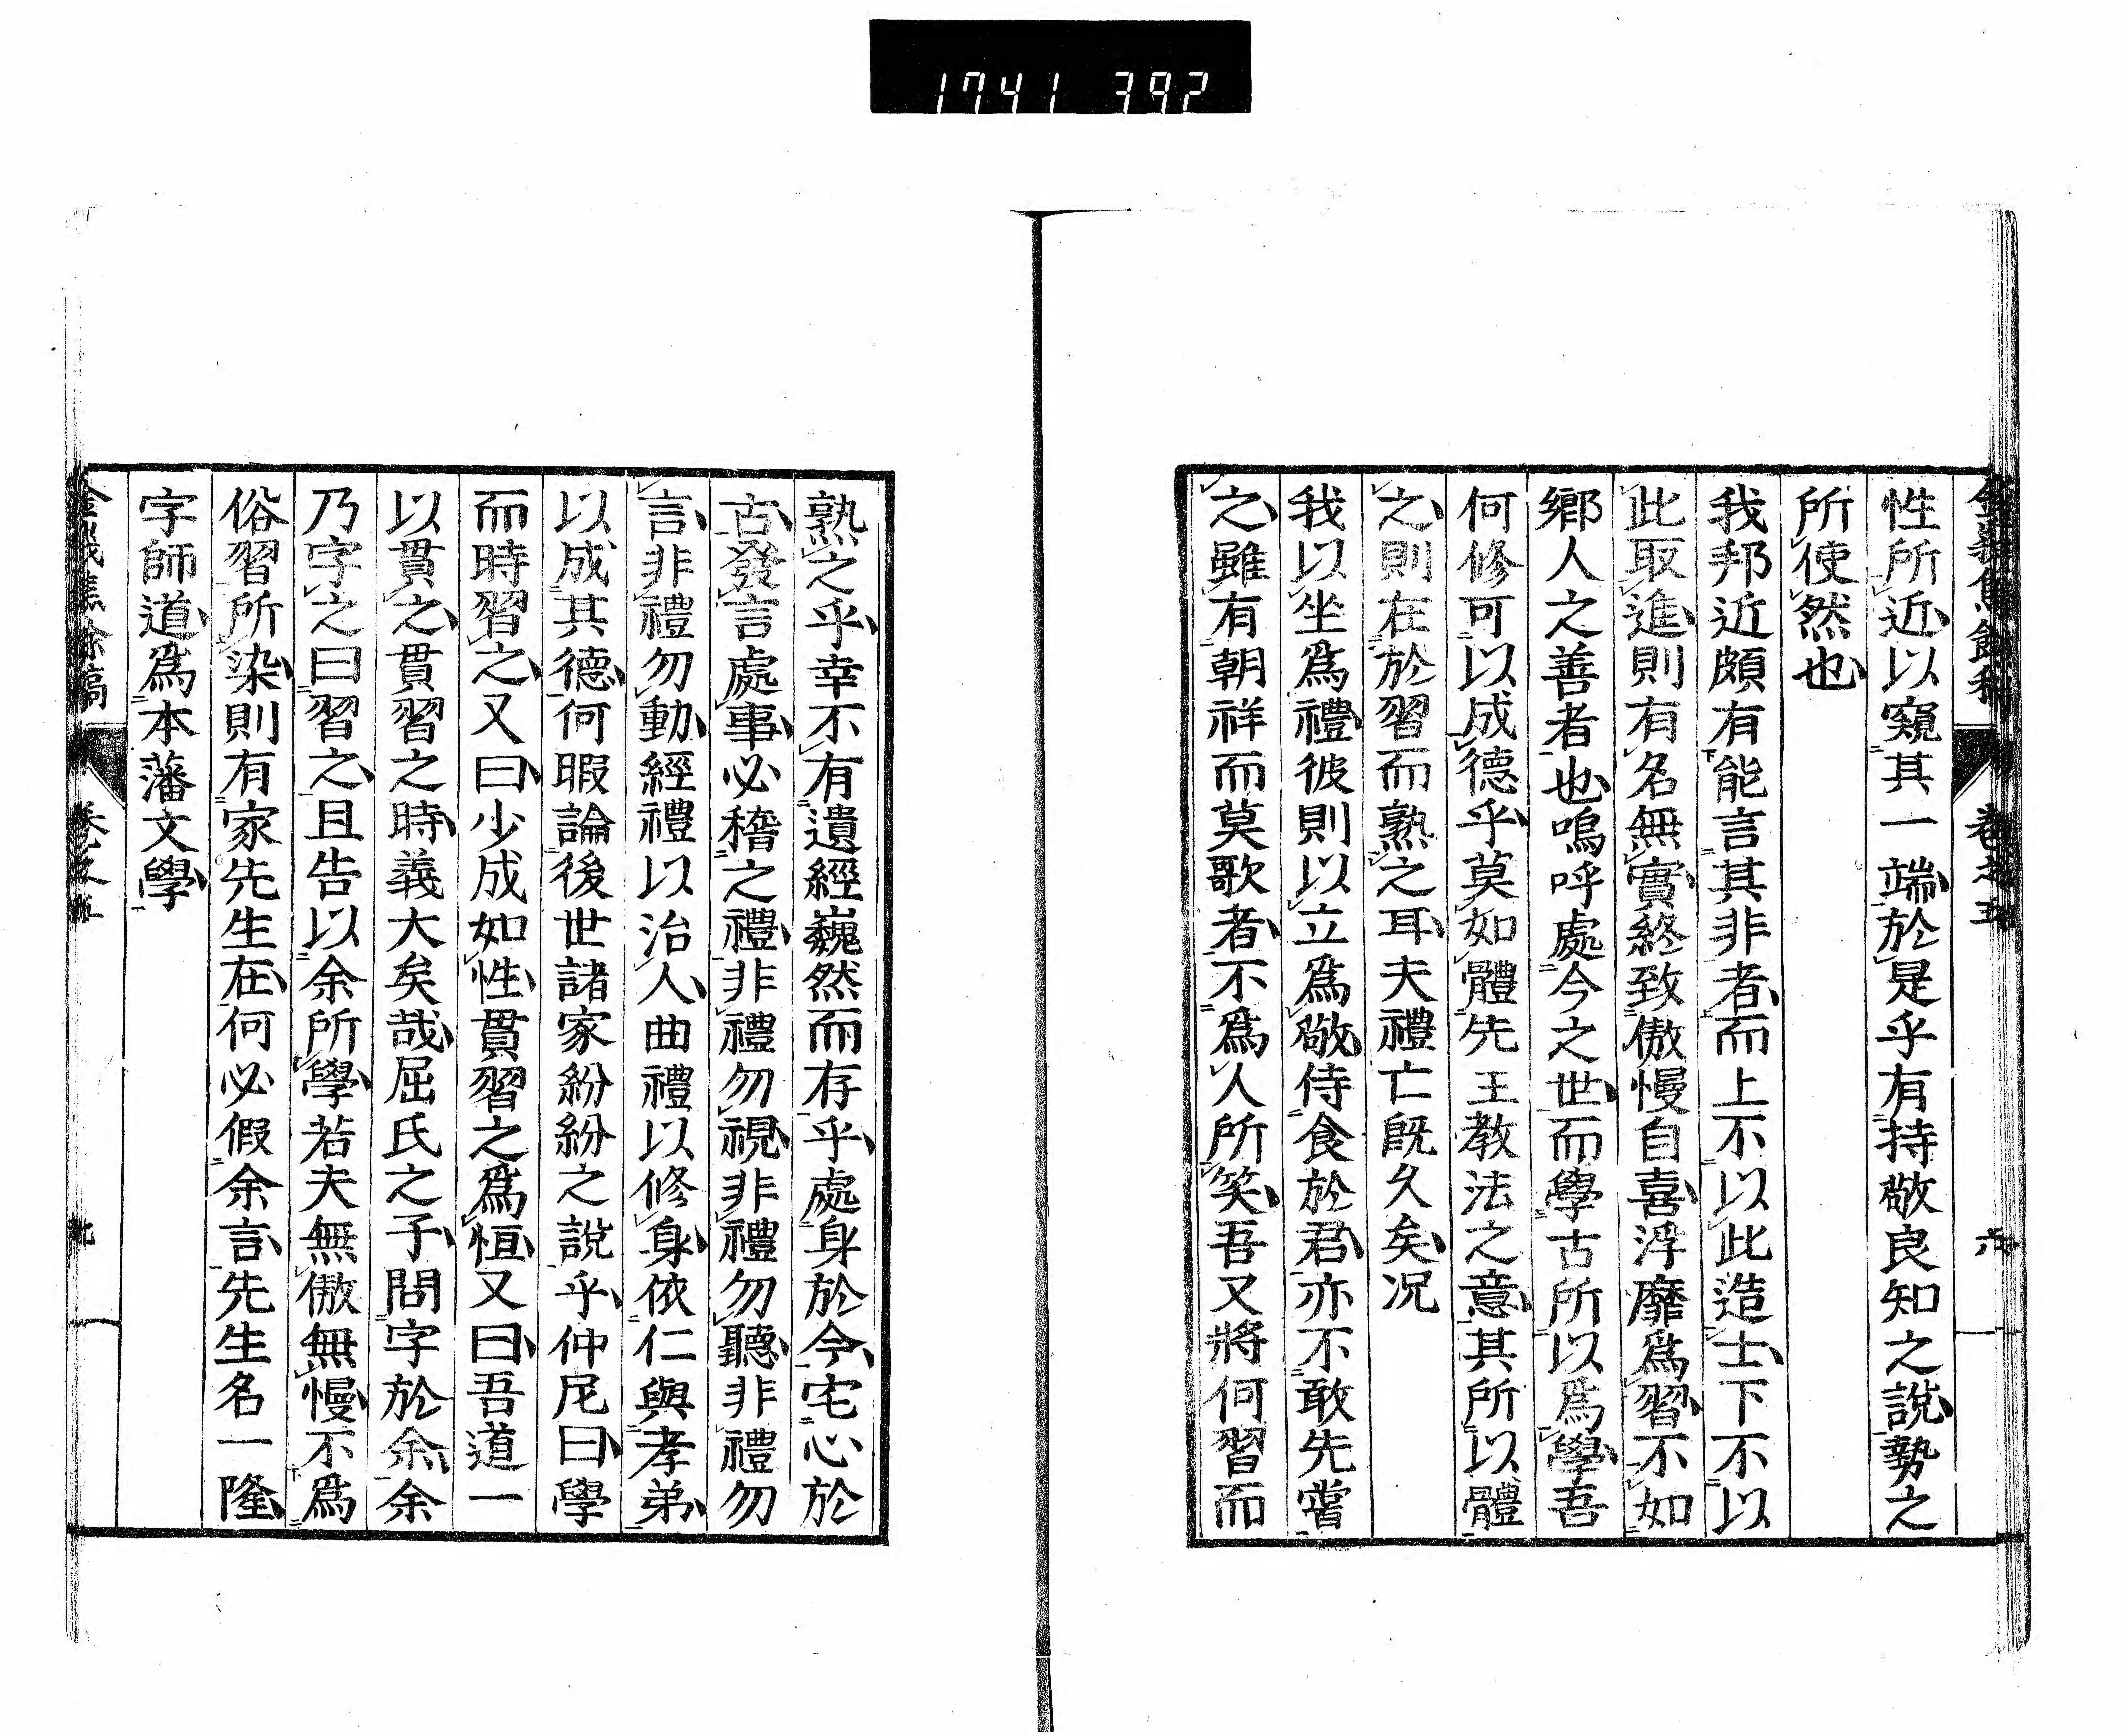 1741 392
性所近以窺其一端於是乎有持敬良知之說勢之
所使然也
我邦近頗有能言其非者而上不以此造士下不以
此取進則有名無實終致傲慢自喜浮靡爲習不如
鄉人之善者也嗚呼處今之世而學古所以爲學吾
何修可以成德乎莫如體先王教法之意其所以體
之則在於習而熟之耳夫禮亡既久矣况
我以坐爲禮彼則以立爲敬侍食於君亦不敢先嘗
之雖有朝祥而莫歌者不爲人所笑吾又將何習而
熟之乎幸不有遺經巍然而存乎處身於今宅心於
古發言處事必稽之禮非禮勿視非禮勿聽非禮勿
言非禮勿動經禮以治人曲禮以修身依仁與孝弟
以成其德何暇論後世諸家紛紛之說乎仲尼曰學
而時習之又曰少成如性貫習之爲恒又曰吾道一
以貫之貫習之時義大矣哉屈氏之子問字於余余
乃字之曰習之且告以余所學若夫無傲無慢不爲
俗習所染則有家先生在何必假余言先生名一隆
字師道爲本藩文學
餘稿 卷之五